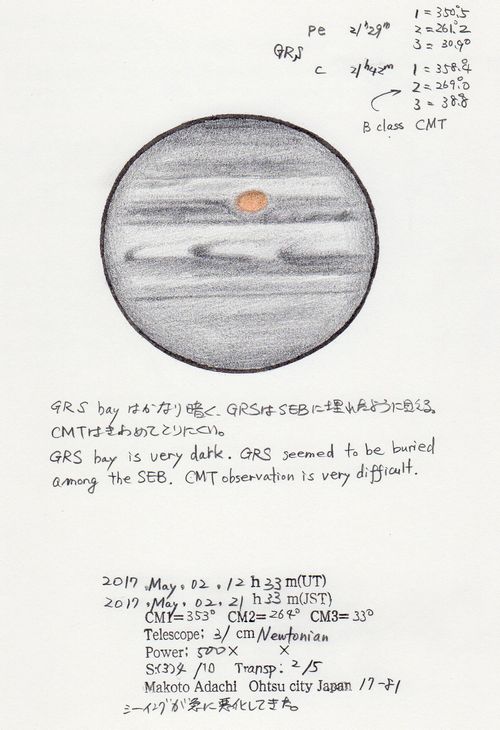 1 = 350°.5
Pe 21h29m 2 = 261°.2
3 = 30.9°
GRS
C 21h42m 1 = 358.4°
2 = 269.0°
3 = 38.8°
B class CMT
GRS bay はかなり暗く、GRSはSEBに埋れたように見える。
CMTはきわめてとりにくい。
GRS bay is very dark. GRS seemed to be buried
among the SEB. CMT observation is very difficult.
2017 . May . 02 . 12 h 33 m(UT)
2017 . May . 02 . 21 h 33 m(JST)
CM1= 353° CM2= 264° CM3= 33°
Telescope; 31 cm Newtonian
Power; 500× ×
S:(3)4 /10 Transp; 2/5
Makoto Adachi Ohtsu city Japan 17-81
シーイングが急に悪化してきた。